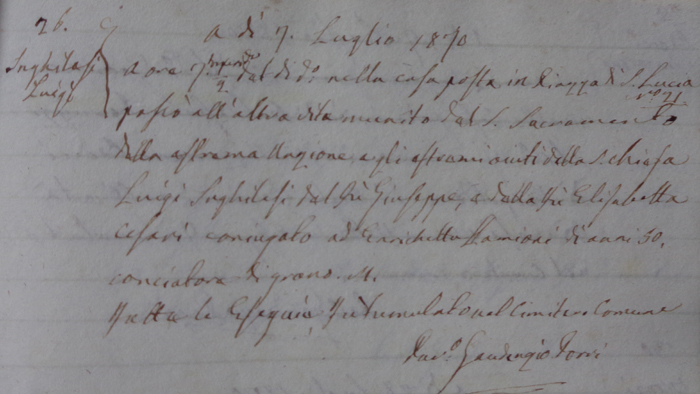 26.
Inghilesi
Luigi
A dì 7. Luglio 1870
a ore 7 del dì dº nella casa posta in Piazza di S. Lucia
nº 21
passò all'altra vita munito del S. Sacramento
della estrema Unzione, e gli estremi aiuti della S. Chiesa
Luigi Inghilesi del fù Giuseppe, e della fù Elisabetta
Cesari coniugato ad Enrichetta di anni 50.
conciatore di grano.
Fatte le Esequie, fù tumulato nel Cimitero Comune
Gaudenzio